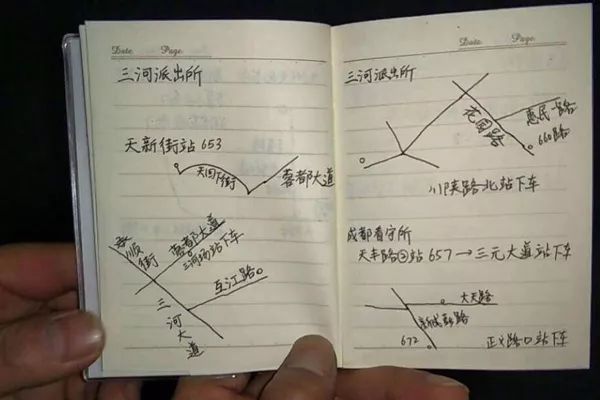 Date. Page.
三河派出所
天新街站 653
天回下街
蓉都大道
顺街
蓉都大道
三河场站下车
互江路
三河大道
Date. Page.
三河派出所
花园路
惠民一路
660路
川陕路北站下车
成都看守所
天丰路②站 657 → 三元大道站下车
大天路
新成彭路
672
正义路口站下车